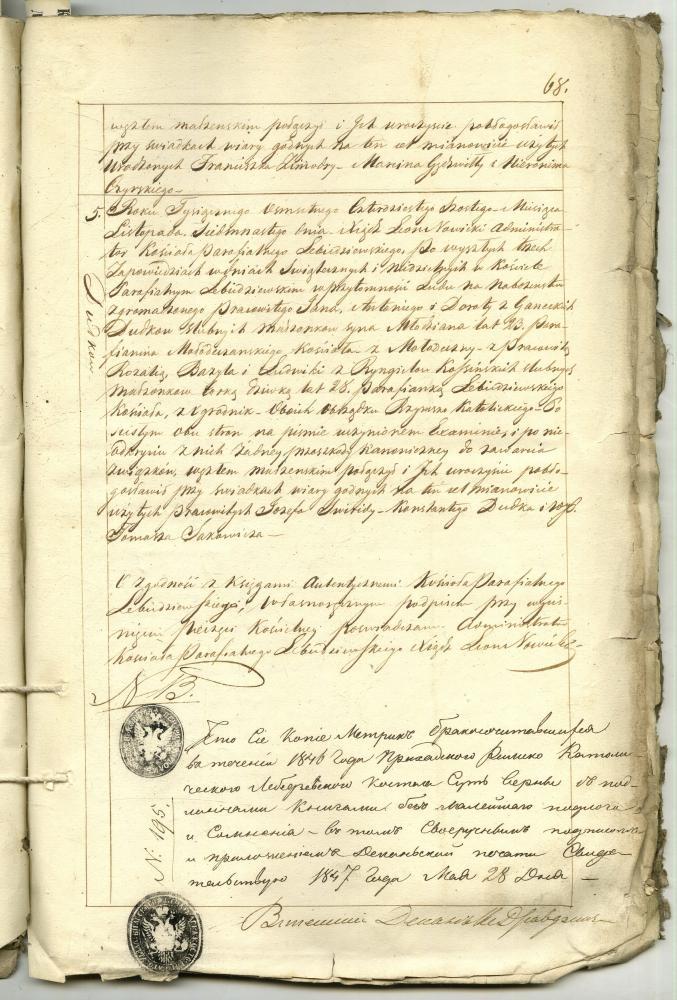 68.
węzłem małżeńskim połączył i Ich uroczyście pobłogosławił
przy świadkach wiary godnych na ten cel mianowicie użytych
Urodzonych Franciszka - Marcina i Hieronima
5. Roku Tysiącznego Osmsetnego Czterdziestego Szostego Miesiąca
Listopada Siedmnastego dnia Xiądz Leon Nowicki Administra-
tor Kościoła Parafialnego Lebiedziewskiego, po wyszłych trzech
Zapowiedziach w dniach Swiątecznych i Niedzielnych w Kościele
Parafialnym Lebiedziewskim w przytomności Ludu na nabożeństwo
zgromadzonego Pracowitego Jana, Antoniego i Doroty z
Dudków slubnych małżonkow syna Młodziana lat 23. Para-
Dudkow
fianina Mołodeczanskiego Kościoła z Mołodeczny - z Pracowitą
Rozalią, Bazyla i Ludwiki z slubnych
małżonkow córką dziewką lat 28. Parafianką Lebiedziewskiego
Kościoła, z Ogrodnik - Oboich obrządku Rzymsko Katolickiego - Po
scisłym obu stron na pismie uczynionem Examinie, i po nie-
odkryciu z nich żadney przeszkody Kanoniczney do zawarcia
związkow, węzłem małżeńskim połączył i Ich uroczyście pobło-
gosławił przy świadkach wiary godnych na ten cel mianowicie
użytych Pracowitych Jozefa - Konstantego Dudka i
Tomasza Sakowicza -
O zgodności z Księgami Autentycznemi Kościoła Parafialnego
Lebiedziewskiego, własnoręcznym podpisem przy wyciś-
nieniu Pieczęci Kościelney poswiadczam Administrator
Kościoła Parafialnego Lebiedziewskiego Xiądz Leon Nowicki
N B.
Что Сіе Копіе Метрикъ бракосочетавшихся
въ теченіи 1846 года Приходскаго Римско Католи-
ческаго Лебедзевскаго костела Суть верны съ под-
линными Книгами безъ малейшаго подлога
и Сомнѣнія - въ томъ Своеручнымъ подписомъ
и приложеніемъ Деканской печати Свидѣ-
тельствую 1847 года Мая 28 Дня -
№ 195.
Деканъ